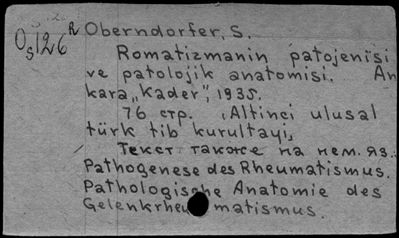 R Oberndorfer, S.
O5126
Romatizmanin patojenisi
ve patolojik anatomisi. An
kara, „Kader", 1935.
76 стр. (Altinci ulusal
türk tib kurultayi)
Текст также на нем. яз.:
Pathogenese des Rheumatismus.
Pathologische Anatomie des
Gelenkrheumatismus.